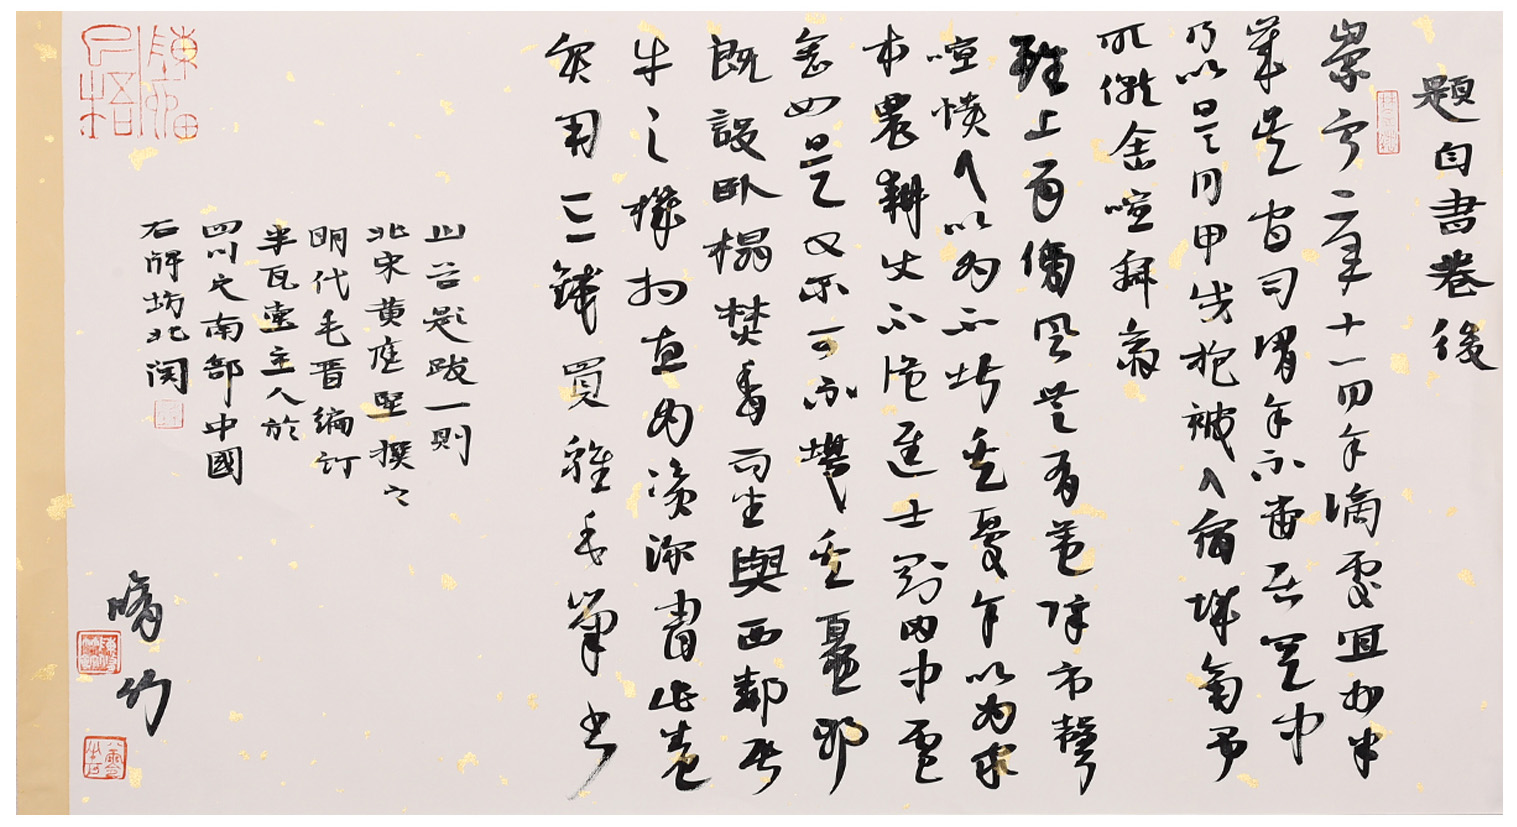 題自書卷後
崇寧三年十一月余謫處宜州半
歲矣官司謂余不當居關中
乃以是月甲戌抱被入宿城南予
所僦舍喧寂齋
雖上雨傍風無有蓋障市聲
喧憒人以為不堪其憂余以為家
本農耕使不從進士則田中廬
舍如是又亦可不堪其憂耶
既設臥榻焚香而坐與西鄰屠
牛之機相直為資深書此卷
實用三錢買雞毛筆書
山谷題跋一則
北宋黃庭堅撰之
明代毛晉編訂
半瓦主人於
四川之南部中國
石牌坊北關
竹